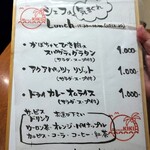 シェフの気まぐれ
Lunch
・かぼちゃとひき肉の
スパゲティグラタン 1,000-
(サラダ・スープ付)
・アクアパッツァ リゾット 1,000-
(サラダ・スープ付)
・ドライカレー オムライス 1,000-
(サラダ・スープ付)
サービス
ドリンク
ウーロン茶・オレンジ・パイナップル
カルピス・コーラ・コーヒー・紅茶